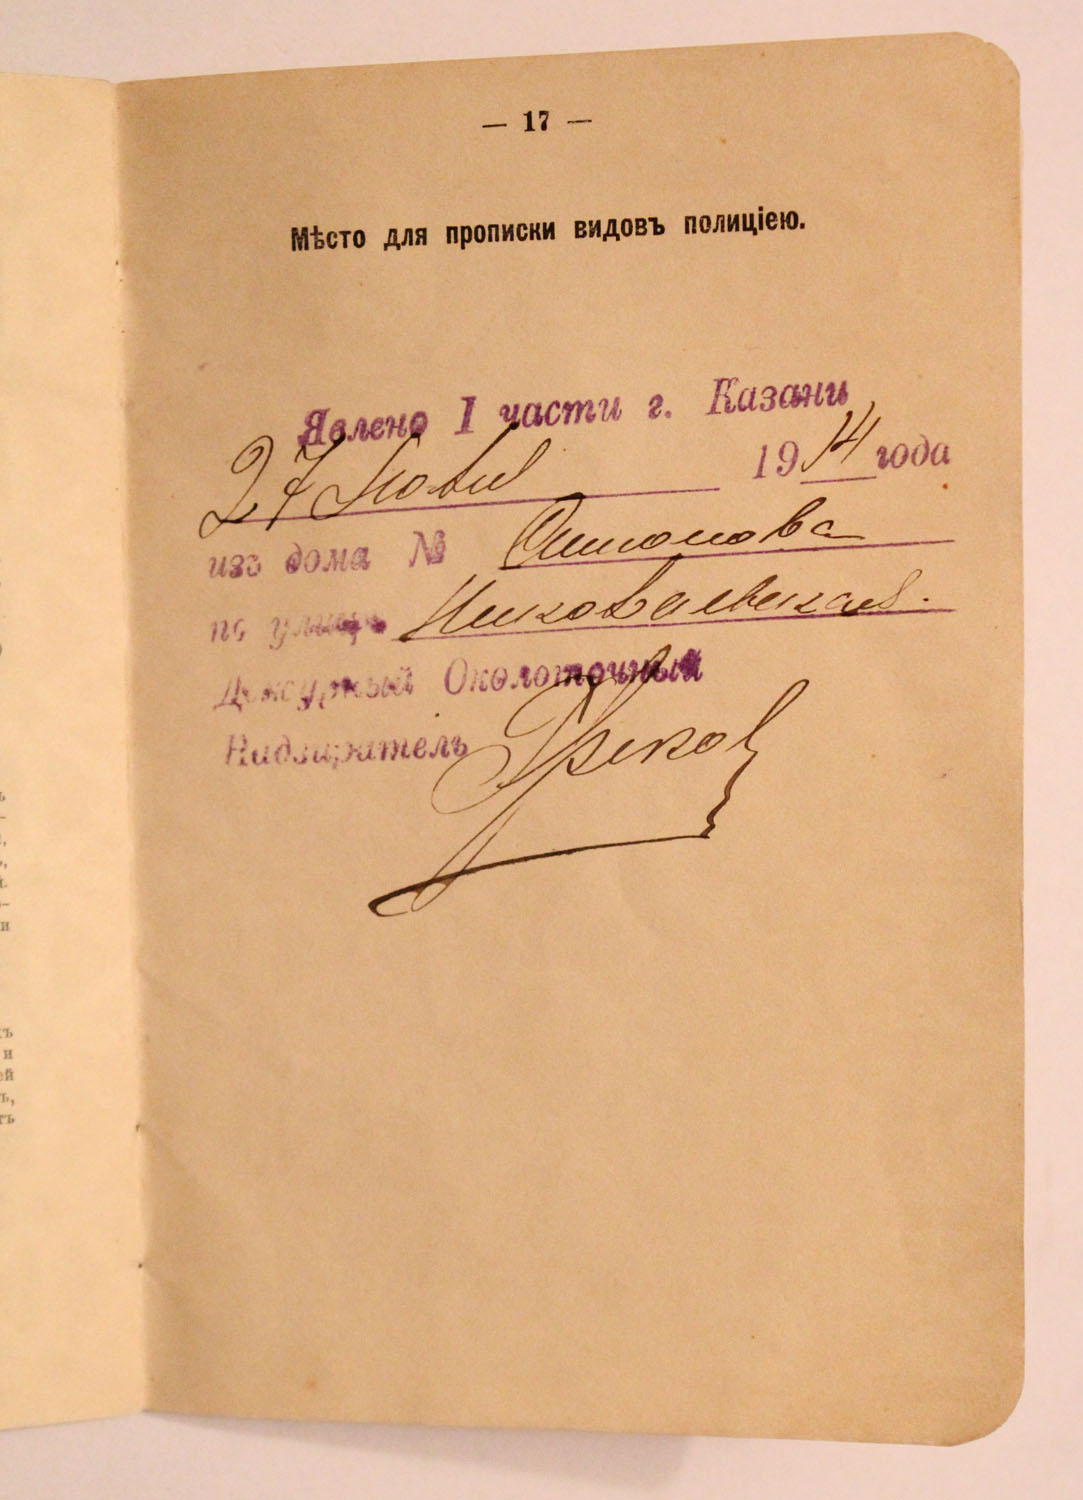 — 17 —
Мѣсто для прописки видовъ полиціею.
Явлено I части г. Казани
27 1914 года
изъ дома №
по улицѣ Николаевская.
Дежурный Околоточный
Надзиратель Греков
ъ
и
ъ
и
ей
ъ,
тъ